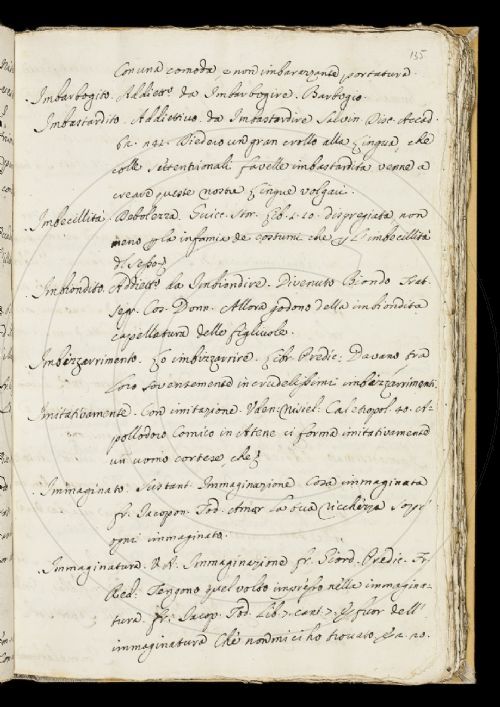 135
Con una comoda, e non imbarazzante portatura.
Imbarbogito. Addiett.º da Imbarbogire. Barbogio.
Imbastardito. Addiettivo da Imbastardire Salvin. Disc. Accad.
Diedero un gran crollo alla Lingua, che
colle Settentrionali favelle imbastardita venne a
creare queste nostre Lingue volgari.
Imbecillità. Debolezza. Guicc. Stor. Lib. 1. 10. dispregiata non
meno p la infamia de costumi che p l'imbecillità
del sesso
Imbiondito. Addiett.º da Imbiondire. Divenuto Biondo. Tratt.
Segr. Cos. Donn. Allora godono della imbiondita
capellatura delle figliuole.
Imbizzarrimento. Lo imbizzarrire. Libr. Predic: Davano fra
loro soventemente in crudelissimi imbizzarrimenti.
Imitativamente. Con imitazione. Uden. Nisiel: 40. A-
pollodoro Comico in Atene ci forma imitativamente
un uomo cortese che
Immaginato. Sustant. Immaginazione. Cosa immaginata
Fr. Jacopon. Tod. Amor la tua ricchezza sopr'
ogni immaginato.
Immaginatura. Immaginazione Fr. Giord. Predic. Fr.
Red: Tengono quel volto impresso nella immagina-
tura. Fr. Jacop. Tod. Lib. 7. cant. 7. E fuor dell'
immaginatura Che non mici ho trovato